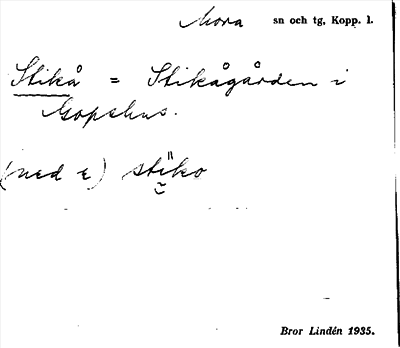 Mora sn och tg, Kopp. l.
Stikå = Stikågården i
Gopshus.
(med ε) stiko
Bror Lindén 1935.